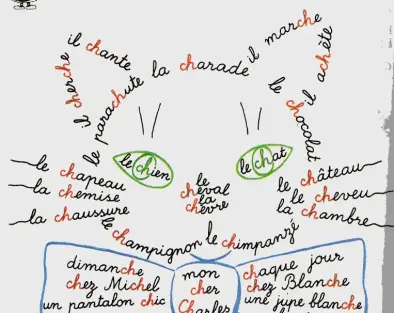 il cherche
il chante
la charade
il marche
il achète
le parachute
le chocolat
le chien
le chat
le chapeau
la chemise
la chaussure
le cheval
la chèvre
le château
le cheveu
la chambre
le champignon
le chimpanzé
dimanche
chez Michel
un pantalon chic
mon
cher
Charles
chaque jour
chez Blanche
une jupe blanche